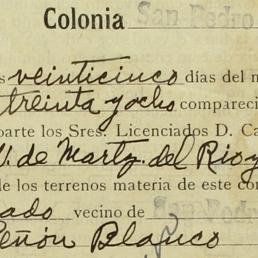 Colonia San Pedro
s veinticinco días del m
treinta y ocho compareci
parte los Sres. Licenciados D. Ca
V. de Martz. del Rio y
de los terrenos materia de este con
ado vecino de San Pedro
Peñón Blanco